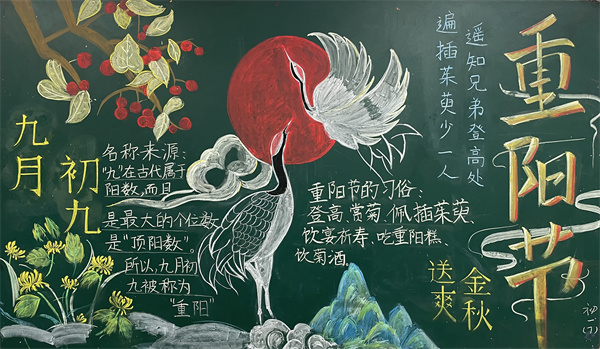 重阳节
遥知兄弟登高处
遍插茱萸少一人
九月
初九
名称来源:
"九"在古代属于
阳数,而且
是最大的个位数
是"顶阳数",
所以,九月初
九被称为
"重阳"
重阳节的习俗:
登高、赏菊、佩插茱萸、
饮宴祈寿、吃重阳糕、
饮菊酒。
金秋
送爽
初一(7)